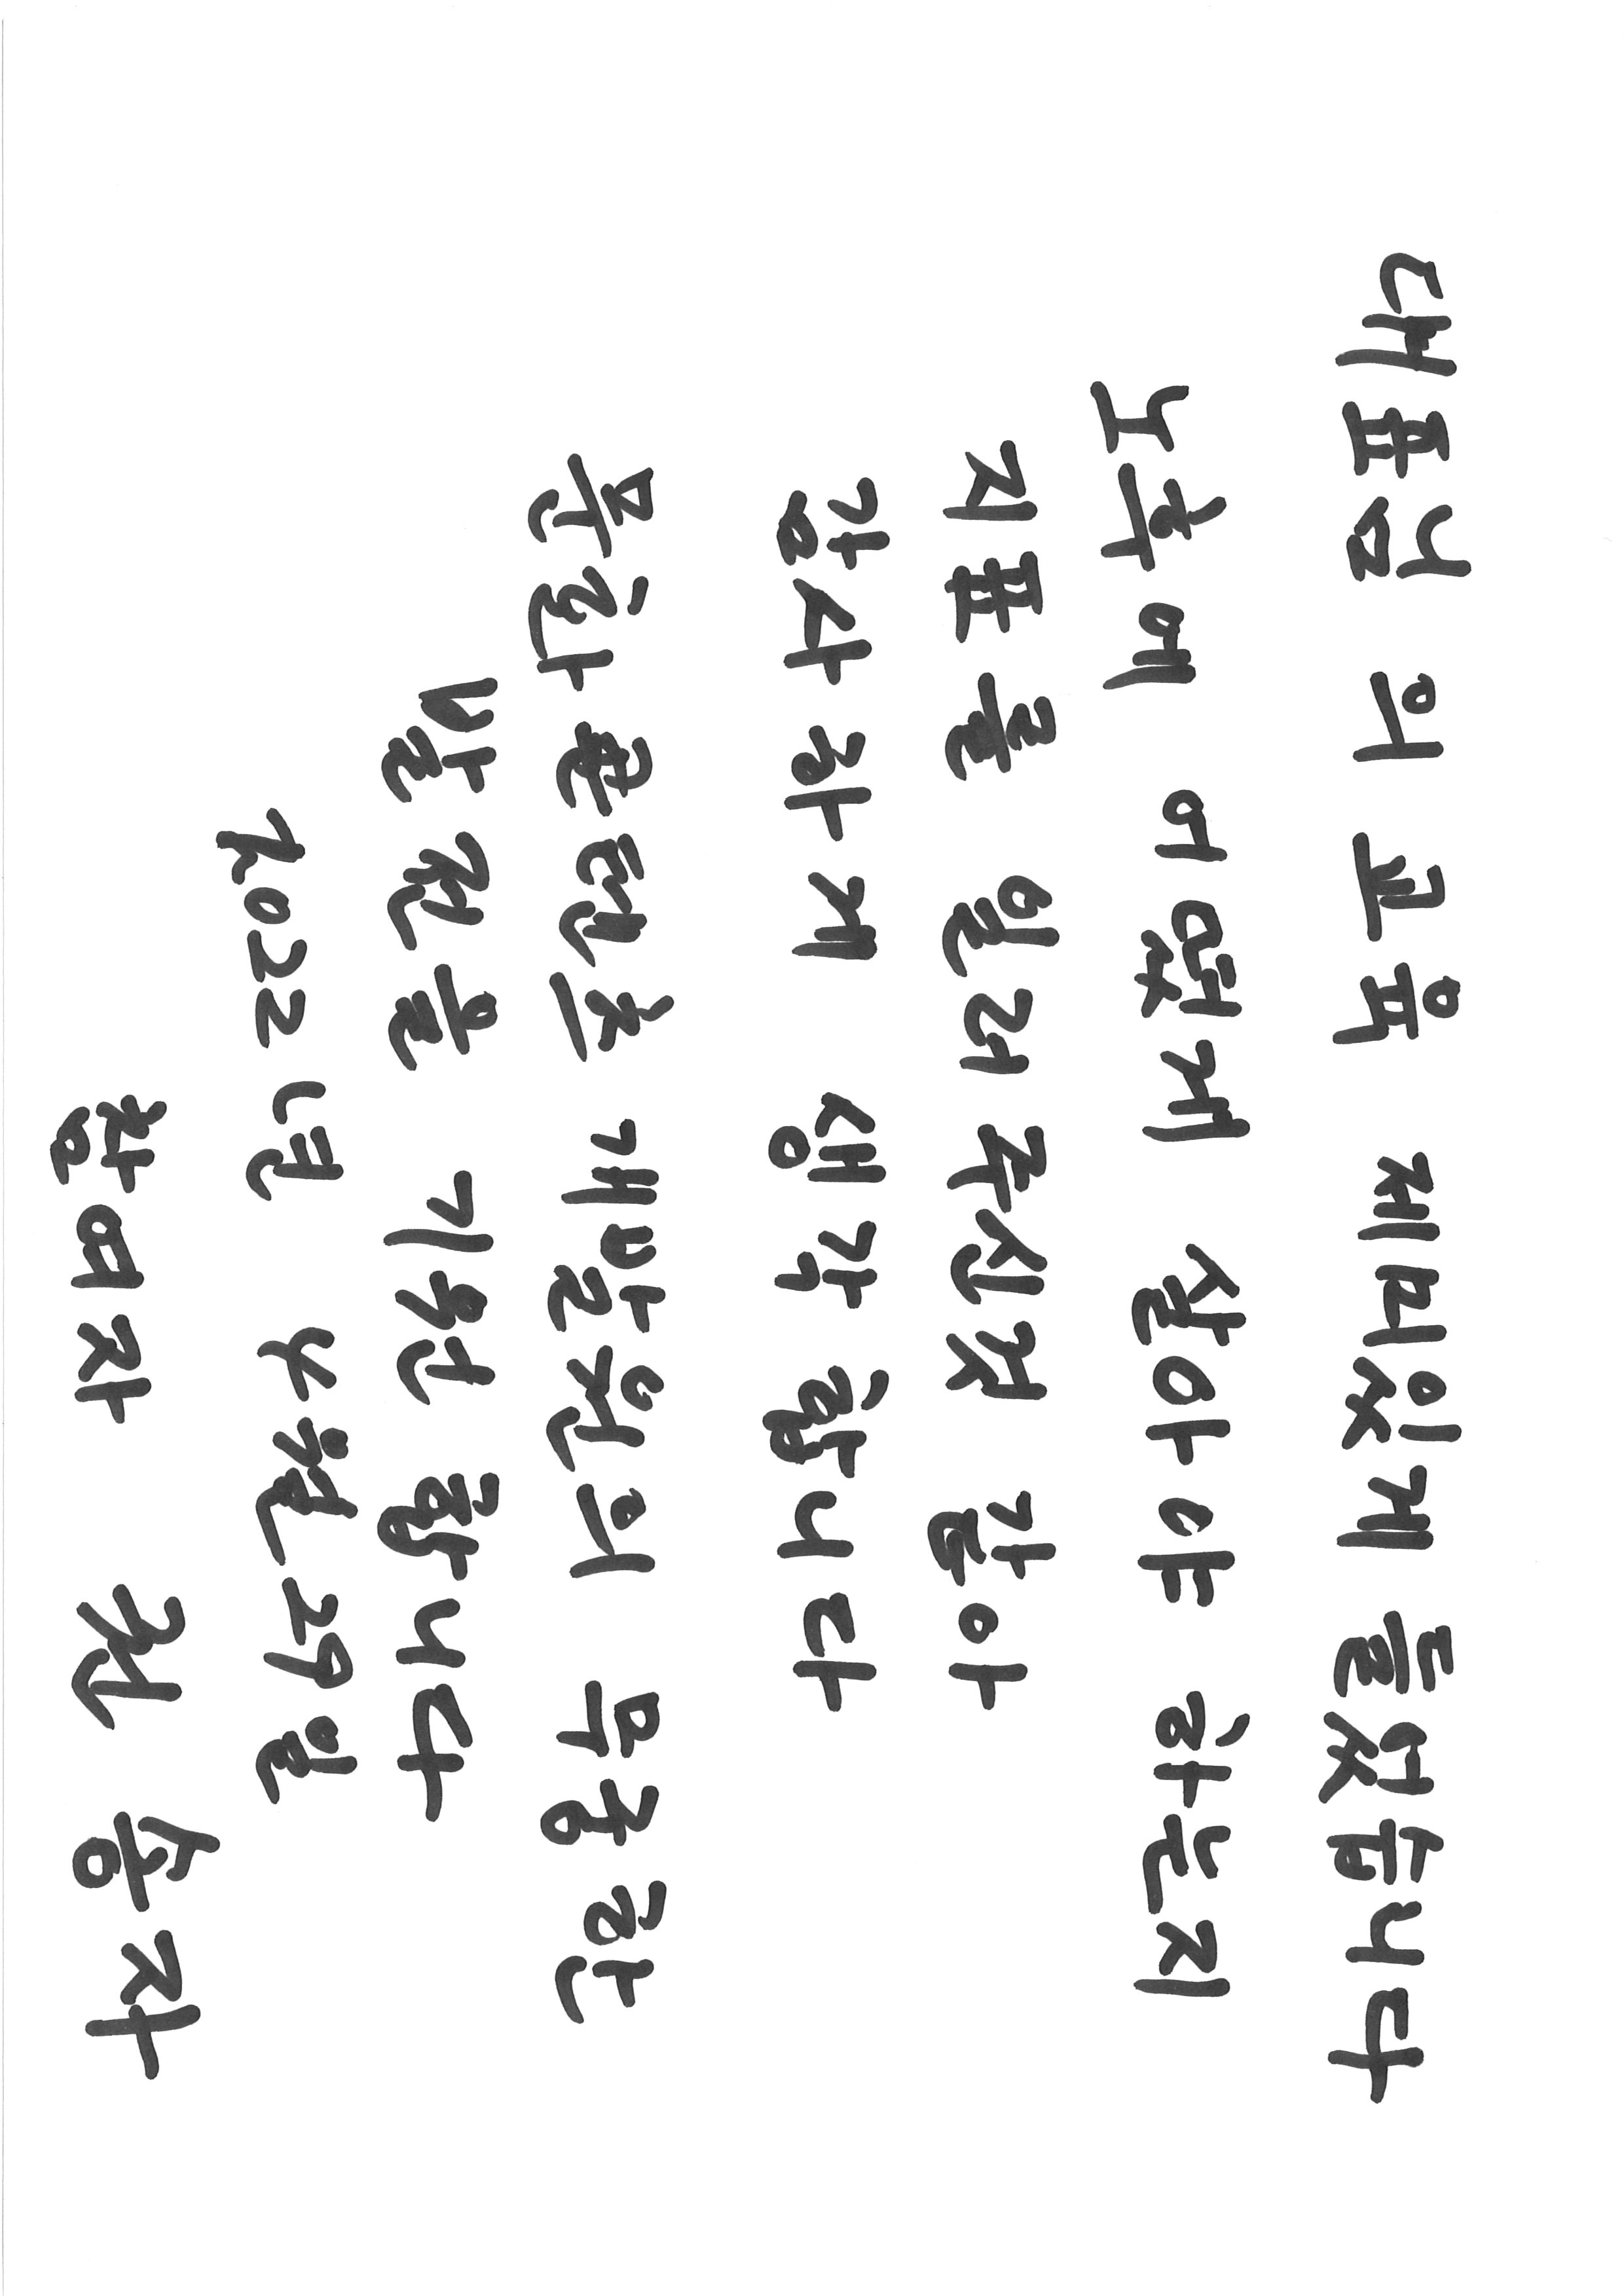 대표님 의 교육 제미있게 들었습니다
노후에 어떻게 살아야 하는지
지표를 일러 주신것 같아
감사하게 생각 합니다
문화콘텐츠 개발원의 무궁한
발전을 기원 합니다
2022년 4월 29일
참여자 권 송자